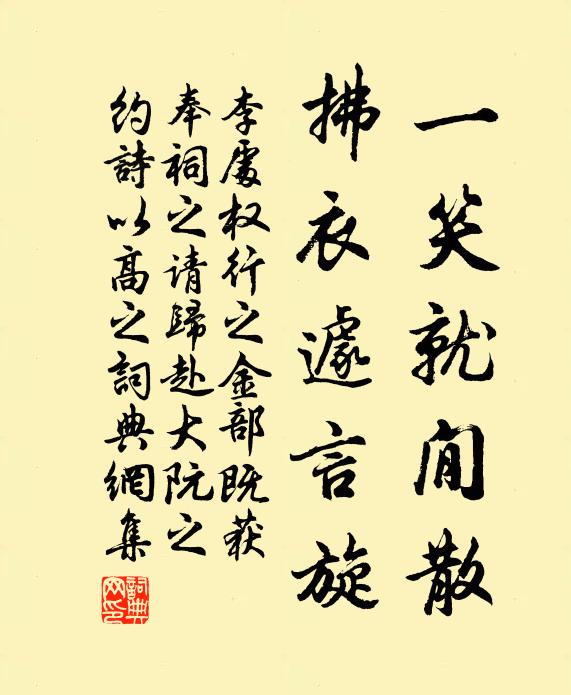 一笑就閒散
拂衣遽言旋
李處权行之金部既获
奉祠之请歸赴大阮之
约詩以高之詞典網集
詞典网印